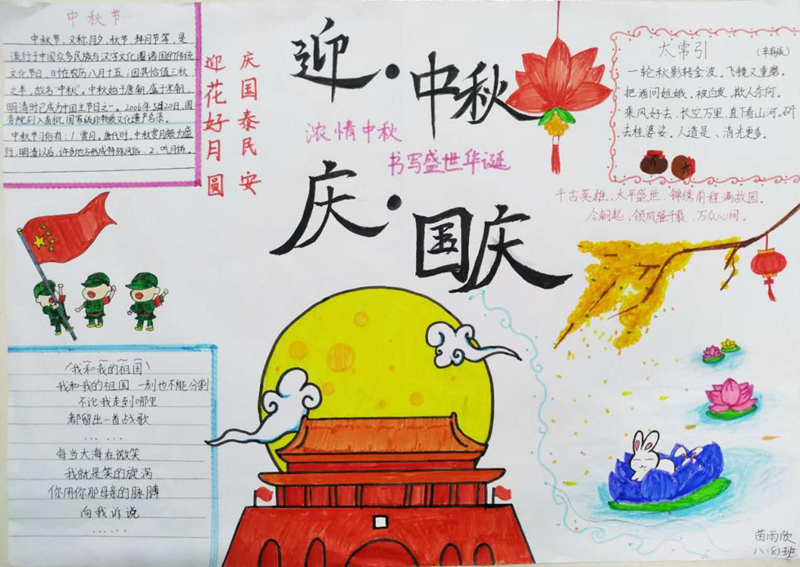 中秋节
中秋节,又称月夕、秋节、拜月节等,是
流行于中国众多民族与汉字文化圈诸国的传统
文化节日,时在农历八月十五,因其恰值三秋
之半,故名“中秋”。中秋始于唐朝,盛于宋朝,
明清时已成为中国主节日之一。2006年5月20日,国
务院列入首批国家级非物质文化遗产名录。
中秋节习俗有:1.赏月。唐代时,中秋赏月
行,明清以后,许多地方形成
迎花好月圆
庆国泰民安
迎·中秋
浓情中秋
书写盛世华诞
庆·国庆
太常引
一轮秋影转金波,飞镜又重磨。
把酒问姮娥,被白发、欺人奈何。
乘风好去,长空万里,直下看山河。斫
去桂婆娑,人道是、清光更多。
千古英雄、太平盛世、锦绣前程满故园。
今朝起、领风骚千载、万众心同。
《我和我的祖国》
我和我的祖国 一刻也不能分割
不论我走到哪里
都留出一首战歌
……
每当大海在微笑
我就是笑的旋涡
你用你那母亲的脉膊
向我诉说
……
苗雨欣
八.(8)班